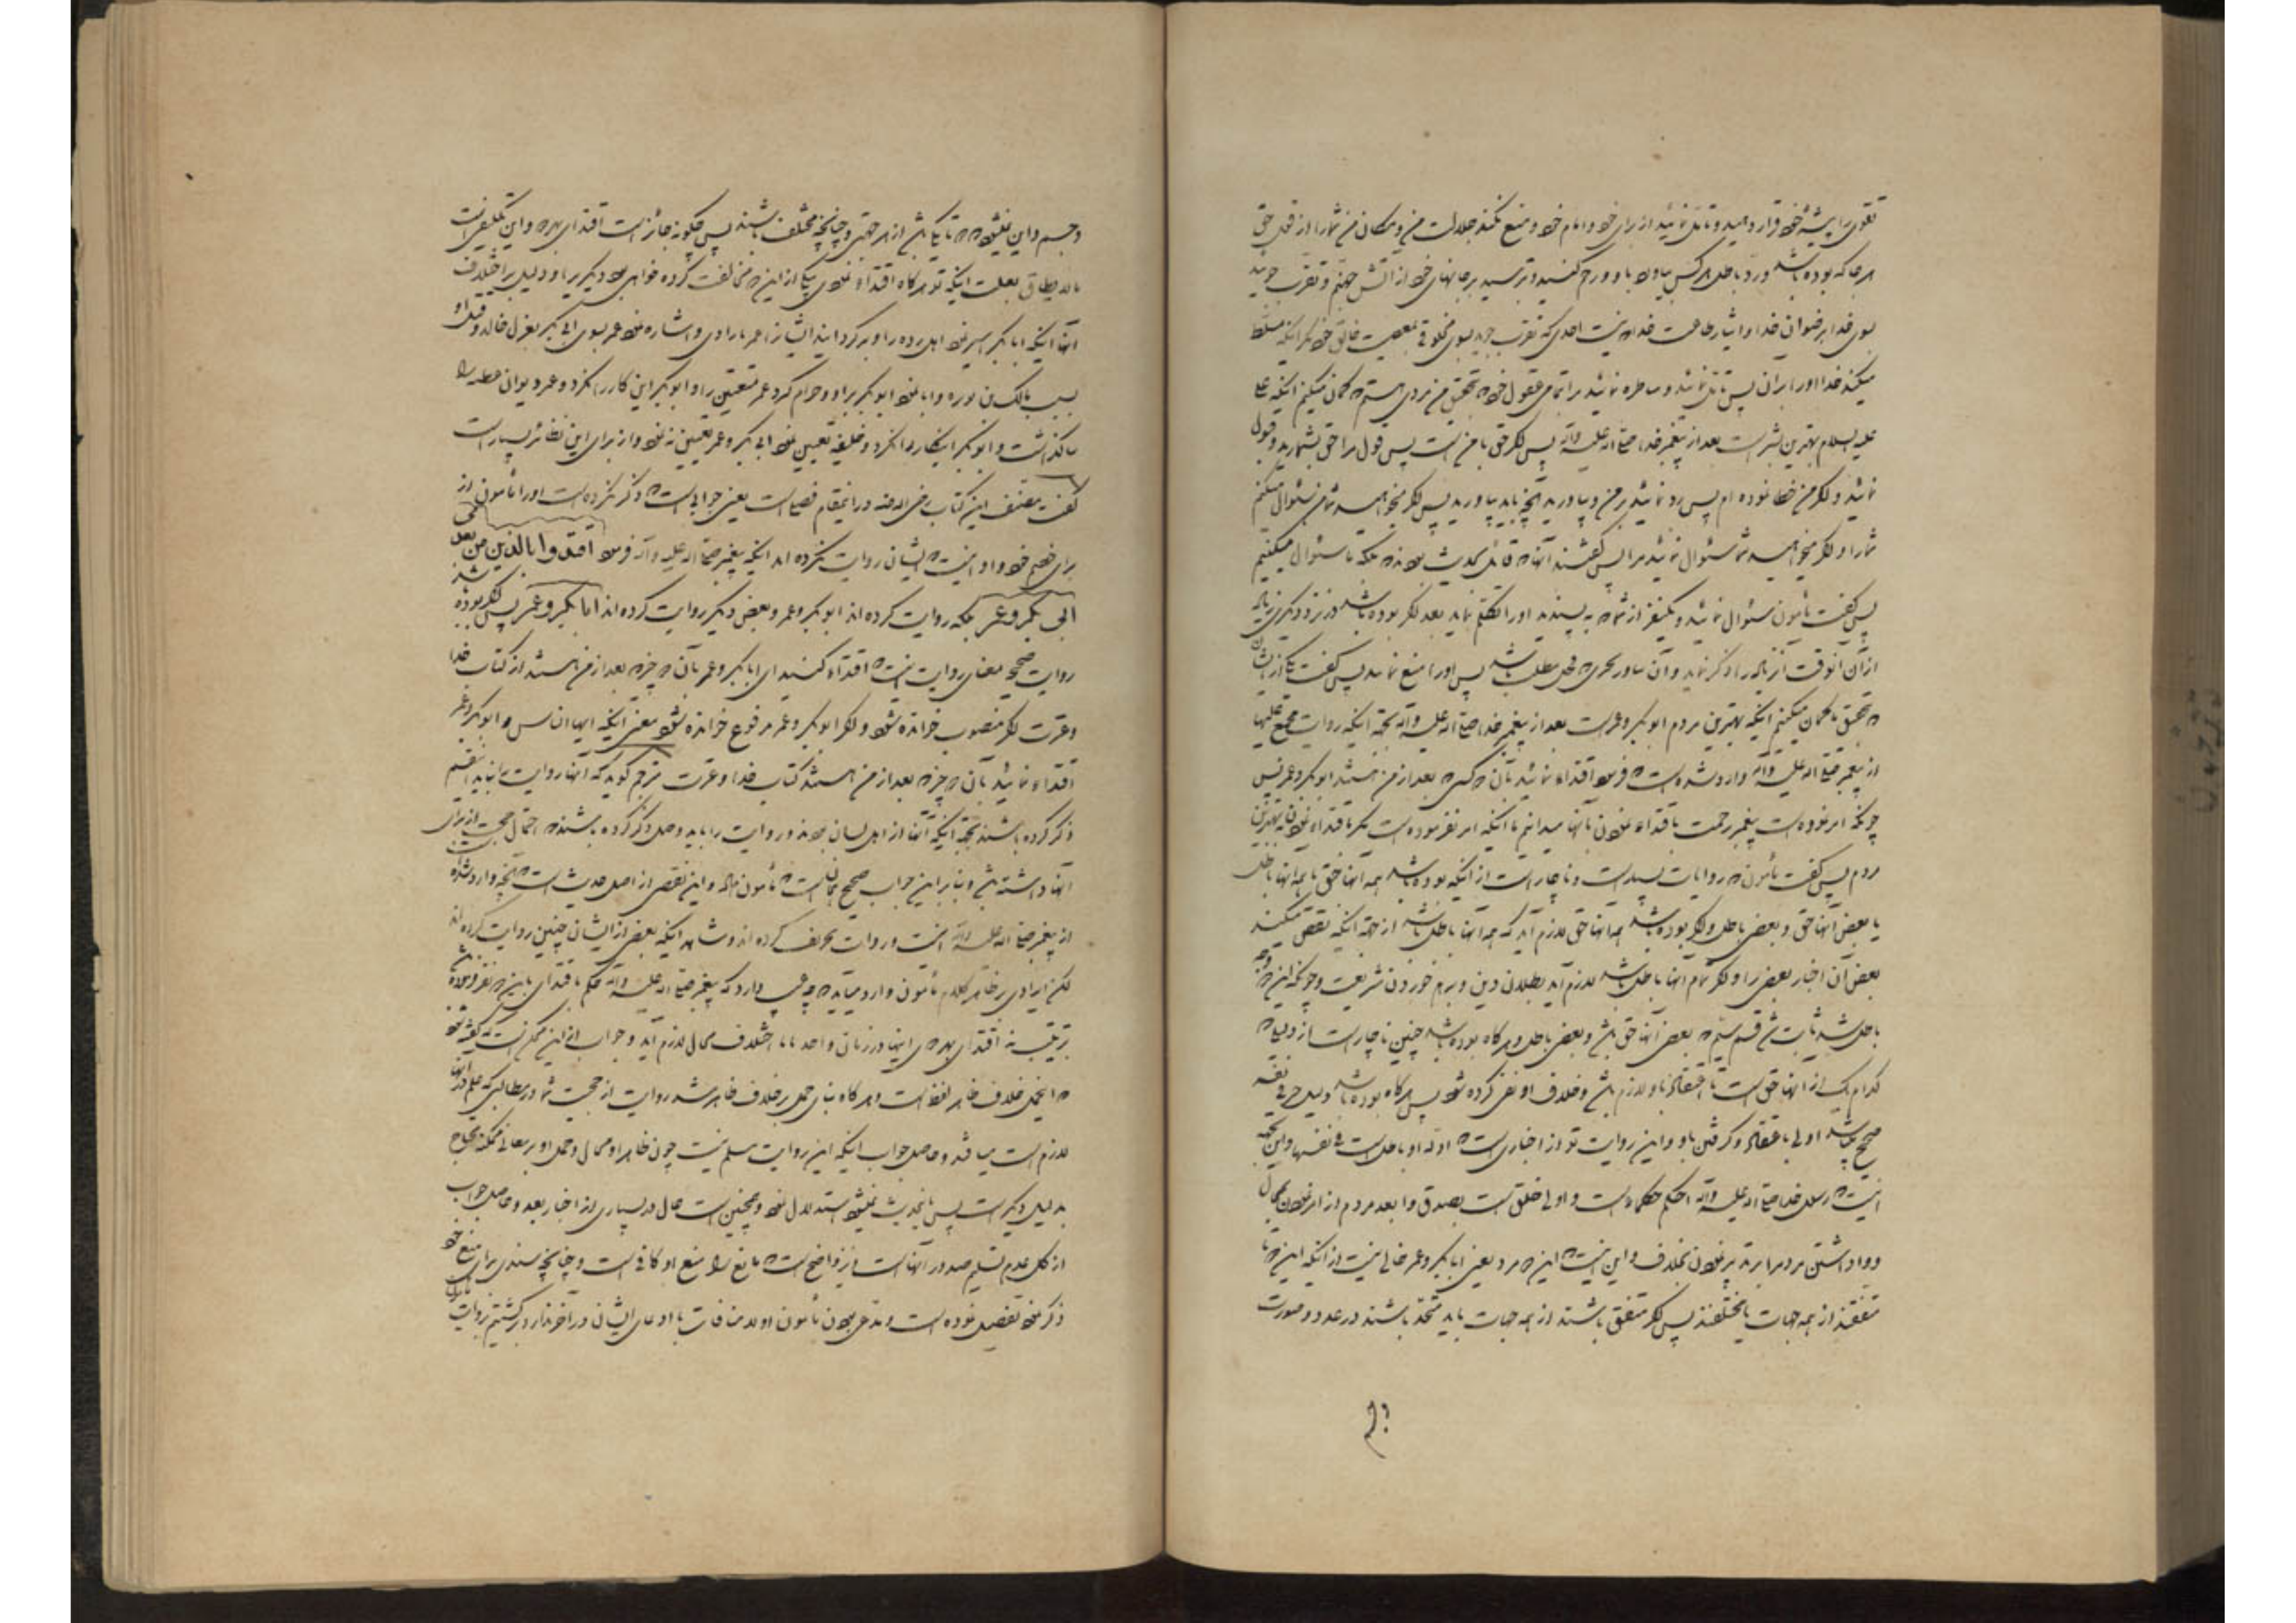 تقوی را پیشهٔ خود قرار دهید و تأمل نمائید از برای خود و امام خود و منع نکند جلالت من و مکان من شما را از قول حق
هر جا که بوده باشد و رد باطل بر هر کس بیاورد باو و رحم کنید و بترسید بر جانهای خود از آتش جهنم و تقرب جوئید
بسوی خدا برضوان خدا و ایثار طاعت خدا نیست احدی که تقرب جوید بسوی مخلوقی بمعصیت خالق خود مگر آنکه مسلط
میکند خدا او را بر آن پس تأمل نمائید و مناظره نمائید مرا بتمامی عقول خود بتحقیق من مردی هستم که گمان میکنم اینکه علی
علیه السلام بهترین بشر است بعد از پیغمبر خدا صلی الله علیه وآله پس اگر حق با من است پس قول مرا حق بشمارید و قبول
نمائید و اگر من خطا نموده ام پس رد نمائید بر من و بیاورید آنچه باید بیاورید پس اگر میخواهید شما من سئوال میکنم
شما را و اگر میخواهید شما سئوال نمائید مرا پس گفتند آنها که قائل بحدیث بودند بلکه ما سئوال میکنیم
پس گفت مأمون سئوال نمائید و یکنفر از شما که بپسندید او را تکلم نماید بعد اگر بوده باشد در نزد دیگری زیاده
از آن آنوقت آن زیاده را ذکر نماید و آن پس او را منع نمائید پس گفت یکی از ایشان
که بتحقیق ما گمان میکنیم اینکه بهترین مردم ابوبکر و عمر است بعد از پیغمبر خدا صلی الله علیه وآله بجهة اینکه روایت مجمع علیها
از پیغمبر صلی الله علیه وآله وارد شده است که فرمود اقتداء نمائید بآن دو کسی که بعد از من هستند ابوبکر و عمر پس
چونکه امر نموده است پیغمبر رحمت باقتداء نمودن بآنها میدانیم ما اینکه امر نفرموده است مگر باقتداء نمودن به بهترین
مردم پس گفت مأمون که روایات بسیار است و ناچار است از اینکه بوده باشد همه آنها حق یا همه آنها باطل
یا بعض آنها حق و بعض باطل و اگر بوده باشد همه آنها حق لازم آید که همه آنها باطل باشد از جهة اینکه نقض میکند
بعض آن اخبار بعض را و اگر تمام آنها باطل باشد لازم آید بطلان دین و برهم خوردن شریعت و چونکه این دو وجه
باطل شد ثابت شد قسم سیم که بعض آنها حق باشد و بعض باطل و هرگاه بوده باشد چنین ناچار است از دلیل که
کدام یک از آنها حق است تا اعتقاد باو لازم باشد و خلاف او نفی کرده شود پس هرگاه بوده باشد دلیل خبر فی نفسه
صحیح میباشد اولی باعتقاد و گرفتن باو و این روایت تو از اخباری است که ادله او باطل است فی نفسها و این بجهة
اینست که رسول خدا صلی الله علیه وآله احکم حکماء است و اولی خلق است بصدق و ابعد مردم از امر نمودن بمحال
و واداشتن مردم را بر تدین نمودن بخلاف و این نیست که این دو مرد یعنی ابابکر و عمر خالی نیست از اینکه این دو یا
متفقند از همه جهات یا مختلفند پس اگر متفق باشند از همه جهات باید متحد باشند در عدد و صورت
وجسم و این نمیشود که دو تا یکی باشند از هر جهتی و چنانچه مختلف باشند پس چگونه جایز است اقتدای بهر دو و این تکلیفی است
ما لا یطاق بعلت اینکه تو هرگاه اقتداء نمودی بیکی از این دو مخالفت کرده خواهی بود دیگری را و دلیل بر اختلاف
آنها اینکه ابابکر اسیر نمود اهل رده را و برگردانید ایشان را عمر بآزادی و اشاره نمود عمر بسوی ابی بکر بعزل خالد و قتل او
بسبب مالک بن نویره و ابا نمود ابوبکر بر او و حرام کرد عمر متعتین را و ابوبکر این کار را نکرد و عمر دیوان عطیه را
بنا گذاشت و ابوبکر اینکار را نکرد و خلیفه تعیین نمود ابی بکر و عمر تعیین ننمود و از برای این نظائر بسیار است
گفت مصنف این کتاب رضی الله عنه در اینمقام فصلی است یعنی جوابی است که ذکر نکرده است او را مأمون از
برای خصم خود و او اینست که ایشان روایت نکرده اند اینکه پیغمبر صلی الله علیه وآله فرمود اقتدوا بالذین من بعدی
ابی بکر وعمر بلکه روایت کرده اند ابوبکر وعمر و بعض دیگر روایت کرده اند ابابکر وعمر پس اگر بوده باشد
روایت صحیح معنای روایت اینست که اقتداء کنید ای ابابکر و عمر بآن دو چیز که بعد از من هستند از کتاب خدا
و عترت اگر منصوب خوانده شود و اگر ابوبکر و عمر مرفوع خوانده شود معنی اینکه ایها الناس و ابوبکر و عمر
اقتداء نمائید بآن دو چیز که بعد از من هستند کتاب خدا و عترت مترجم گوید که آنها روایت را نباید باینقسم
ذکر کرده باشند بجهة اینکه آنها از اهل لسان بودند و روایت را باید وصل ذکر کرده باشند که احتمال صحت از برای
آنها داشته باشد و بنابر این جواب صحیح همان است که مأمون داد و این نقص از اصل حدیث است که آنچه وارد شده
از پیغمبر صلی الله علیه وآله اینست و روایت تحریف کرده اند و شاهد اینکه بعض از ایشان چنین روایت کرده اند
لکن ایرادی بر ظاهر کلام مأمون وارد میاید که چه عیب دارد که پیغمبر صلی الله علیه وآله حکم باقتدای باین دو نفر فرموده باشد
بترتیب نه اقتدای بهر دوی اینها در زمان واحد تا با اختلاف محال لازم آید و جواب از این ممکن است که گفته شود
که اینحمل خلاف ظاهر لفظ است و هرگاه بنای حمل بر خلاف ظاهر شد روایت از حجیت شما در مطالبی که علم در آنها
لازم است میافتد و حاصل جواب اینکه این روایت مسلم نیست چون ظاهر او محال و حمل او بر معانی ممکنه محتاج
بدلیل دیگر است پس باینحدیث نمیشود استدلال نمود و همچنین است حال در بسیاری از اخبار بعد و حاصل جواب
از کل عدم تسلیم صدور آنها است و نیز واضح است که مانع را منع او کافی است و چنانچه سندی برای منع خود
ذکر نمود تفضل نموده است و مدعی بودن مأمون اولا منافات با ادعای ایشان در آخر ندارد برگشتیم بروایت